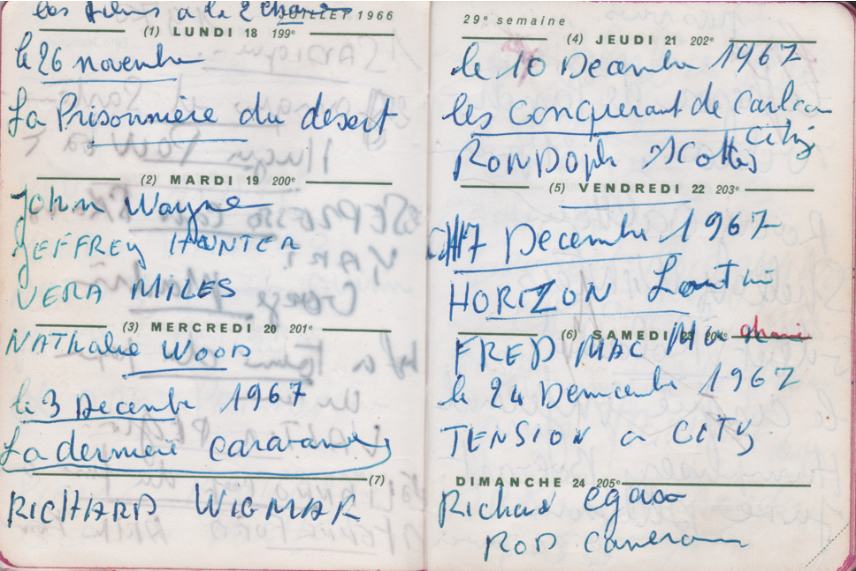 les films a la 2 chaine JUILLET 1966
(1) LUNDI 18 199e
le 26 novembre
La Prisonnière du desert
(2) MARDI 19 200e
John Wayne
JEFFREY HUNTER
VERA MILES
(3) MERCREDI 20 201e
NAThalie WOOD
le 3 Decembre 1967
La dernière caravane
(7)
RICHARD WIGMAR
29e semaine
(4) JEUDI 21 202e
le 10 Decembre 1967
les conquerant de Carson
City
RONDOPh SCOTTES
(5) VENDREDI 22 203e
17 Decembre 1967
HORIZON Lointain
(6) SAMEDI 23 204e
FRED MAC MU
le 24 Decembre 1967
TENSION a CITY
DIMANCHE 24 205e
Richard egaso
ROD Cameron